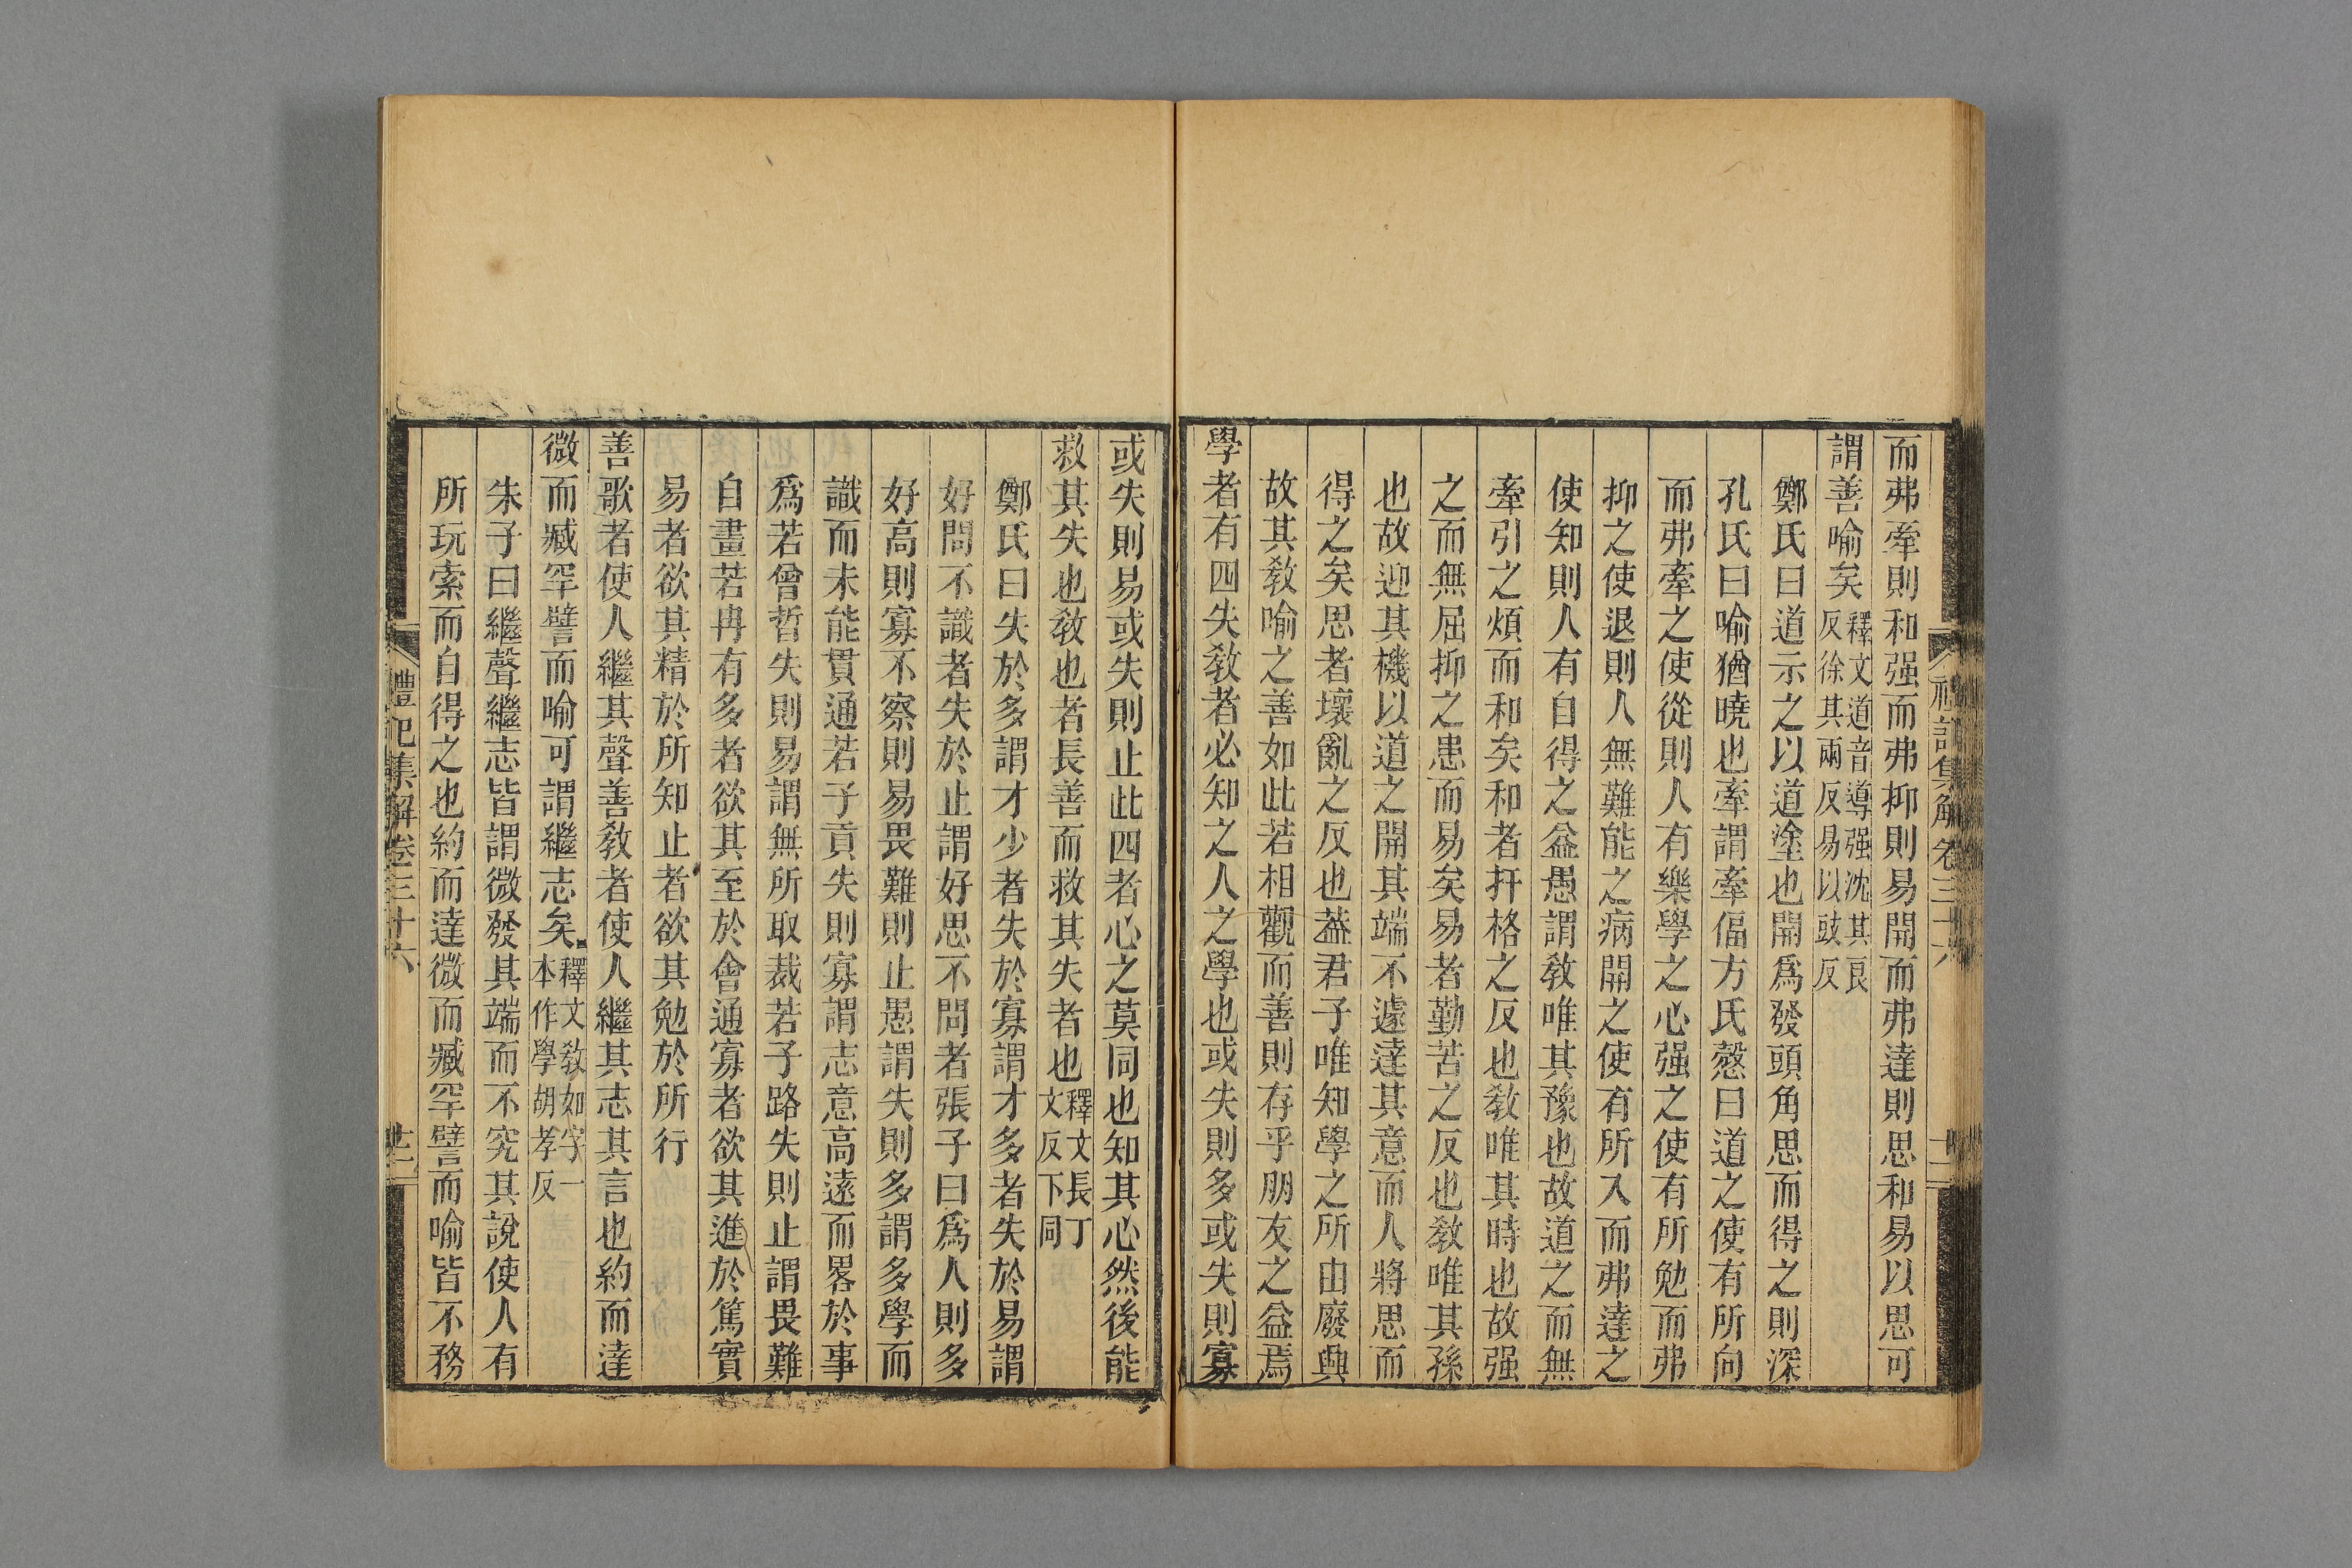 而弗牽則和强而弗抑則易開而弗達則思和易以思可
謂善喻矣釋文道音導强沈其良
反徐其兩反易以豉反
鄭氏曰道示之以道塗也開爲發頭角思而得之則深
孔氏曰喻猶曉也牽謂牽偪方氏慤曰道之使有所向
而弗牽之使從則人有樂學之心强之使有所勉而弗
抑之使退則人無難能之病開之使有所入而弗達之
使知則人有自得之益愚謂敎唯其豫也故道之而無
牽引之煩而和矣和者扞格之反也敎唯其時也故强
之而無屈抑之患而易矣易者勤苦之反也敎唯其孫
也故迎其機以道之開其端不遽達其意而人將思而
得之矣思者壞亂之反也葢君子唯知學之所由廢興
故其敎喻之善如此若相觀而善則存乎朋友之益焉
學者有四失敎者必知之人之學也或失則多或失則寡
或失則易或失則止此四者心之莫同也知其心然後能
救其失也敎也者長善而救其失者也釋文長丁
文反下同
鄭氏曰失於多謂才少者失於寡謂才多者失於易謂
好問不識者失於止謂好思不問者張子曰爲人則多
好高則寡不察則易畏難則止愚謂失則多謂多學而
識而未能貫通若子貢失則寡謂志意高遠而畧於事
爲若曾晳失則易謂無所取裁若子路失則止謂畏難
自畫若冉有多者欲其至於會通寡者欲其進於篤實
易者欲其精於所知止者欲其勉於所行
善歌者使人繼其聲善敎者使人繼其志其言也約而達
微而臧罕譬而喻可謂繼志矣釋文敎如字一
本作學胡孝反
朱子曰繼聲繼志皆謂微發其端而不究其說使人有
所玩索而自得之也約而達微而臧罕譬而喻皆不務
禮記集解卷三十六